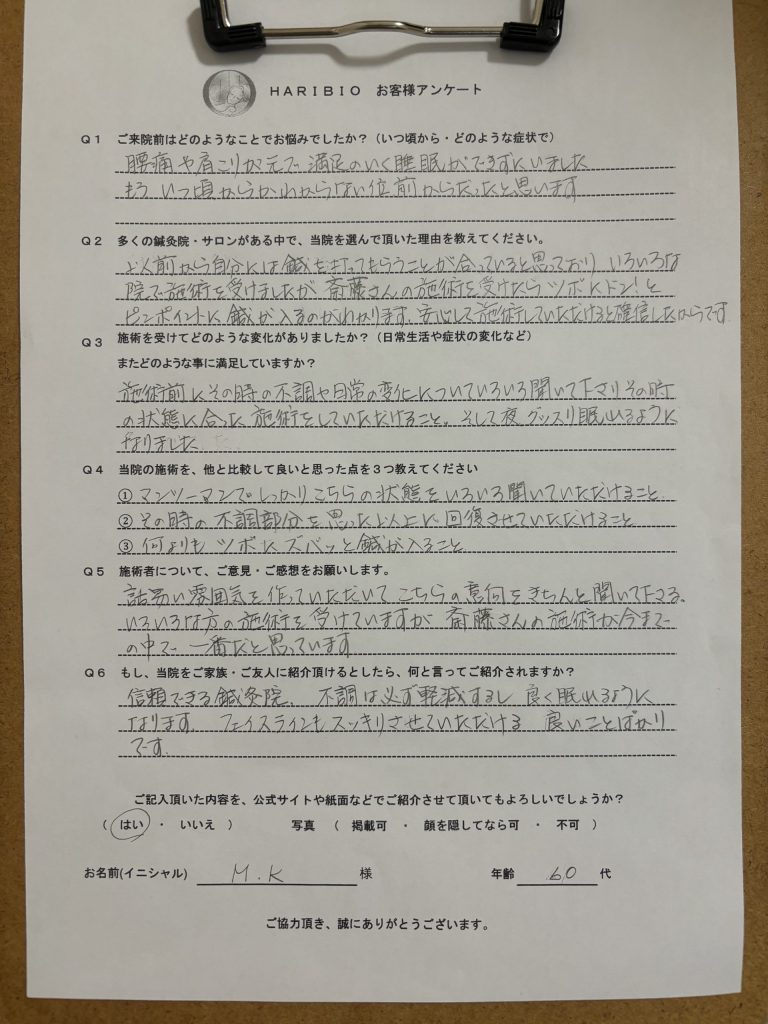 HARIBIO お客様アンケート
Q1 ご来院前はどのようなことでお悩みでしたか？（いつ頃から・どのような症状で）
腰痛や肩こりが元で 満足のいく睡眠ができずにいました
もう いつ頃からかわからない位 前からだったと思います
Q2 多くの鍼灸院・サロンがある中で、当院を選んで頂いた理由を教えてください。
以前から自分には鍼を打ってもらうことが合っていると思っており いろいろな
院で施術を受けましたが 斎藤さんの施術を受けたら ツボにドン！と
ピンポイントに 鍼が入るのがわかります。安心して施術していただけると確信したからです
Q3 施術を受けてどのような変化がありましたか？（日常生活や症状の変化など）
またどのような事に満足していますか？
施術前にその時の不調や日常の変化についていろいろ聞いて下さりその時
の状態に合った 施術をしていただけること。そして夜 グッスリ眠れるように
なりました
Q4 当院の施術を、他と比較して良いと思った点を３つ教えてください
① マンツーマンでしっかりこちらの状態をいろいろ聞いていただけること
② その時の不調部分を思った以上に 回復させていただけること
③ 何よりも ツボにズバッと鍼が入ること
Q5 施術者について、ご意見・ご感想をお願いします。
話易い雰囲気を作っていただいて こちらの意向をきちんと聞いて下さる。
いろいろな方の施術を受けていますが 斎藤さんの施術が今まで
の中で 一番だと思っています
Q6 もし、当院をご家族・ご友人に紹介頂けるとしたら、何と言ってご紹介されますか？
信頼できる鍼灸院。 不調は必ず軽減するし 良く眠れるように
なります。 フェイスラインもスッキリさせていただける 良いことばかり
です。
ご記入頂いた内容を、公式サイトや紙面などでご紹介させて頂いてもよろしいでしょうか？
（ はい ・ いいえ ） 写真 （ 掲載可 ・ 顔を隠してなら可 ・ 不可 ）
お名前(イニシャル) M.K 様 年齢 60 代
ご協力頂き、誠にありがとうございます。